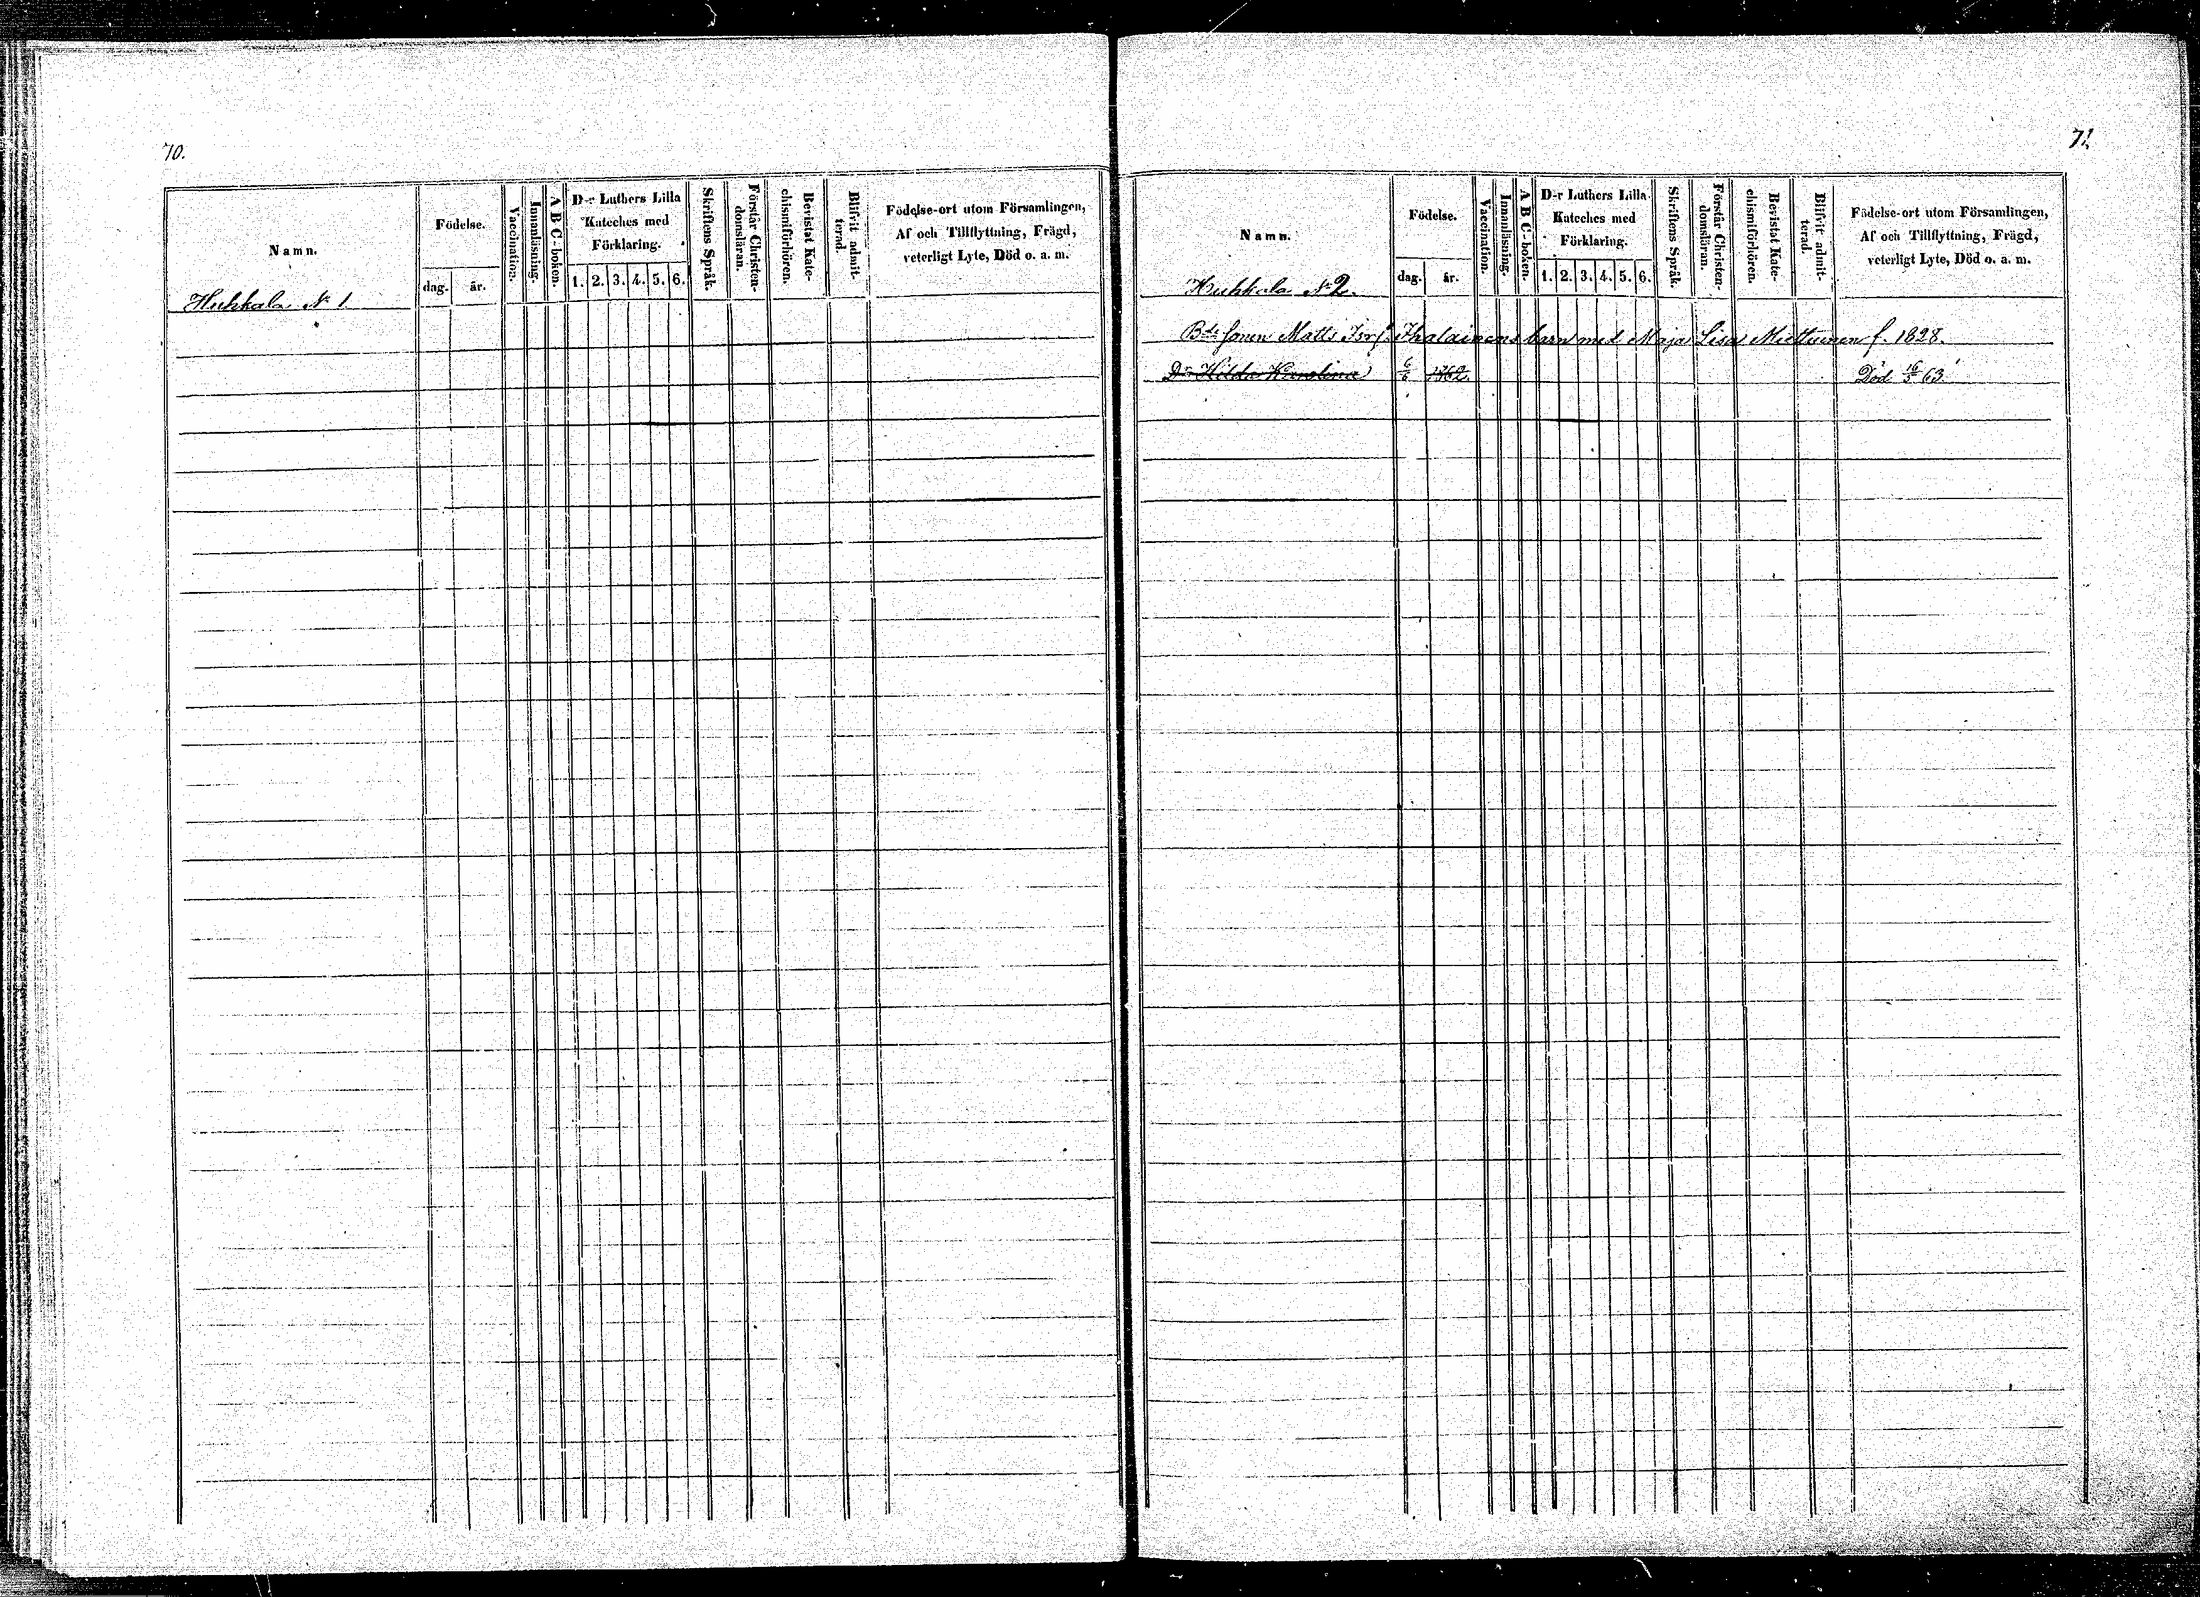 70.
Namn. Födelse. Vaccination. Innanläsning. A B C-boken. D-r Luthers Lilla Kateches med Förklaring. Skriftens Språk. Förstår Christendomsläran. Bevistat Katechismiförhören. Blifvit admitterad. Födelse-ort utom Församlingen, Af och Tillflyttning, Frägd, veterligt Lyte, Död o. a. m.
dag. år. 1. 2. 3. 4. 5. 6.
Huhkala N 1
71
Namn. Födelse. Vaccination. Innanläsning. A B C-boken. D-r Luthers Lilla Kateches med Förklaring. Skriftens Språk. Förstår Christendomsläran. Bevistat Katechismiförhören. Blifvit admitterad. Födelse-ort utom Församlingen, Af och Tillflyttning, Frägd, veterligt Lyte, Död o. a. m.
dag. år. 1. 2. 3. 4. 5. 6.
Huhkala N 2.
Bde sonen Matts Ihalainens barn med Maja Lisa Miettuinen f. 1828.
Dr Hilda Karolina 6/6 1862. Död 16/5 63.